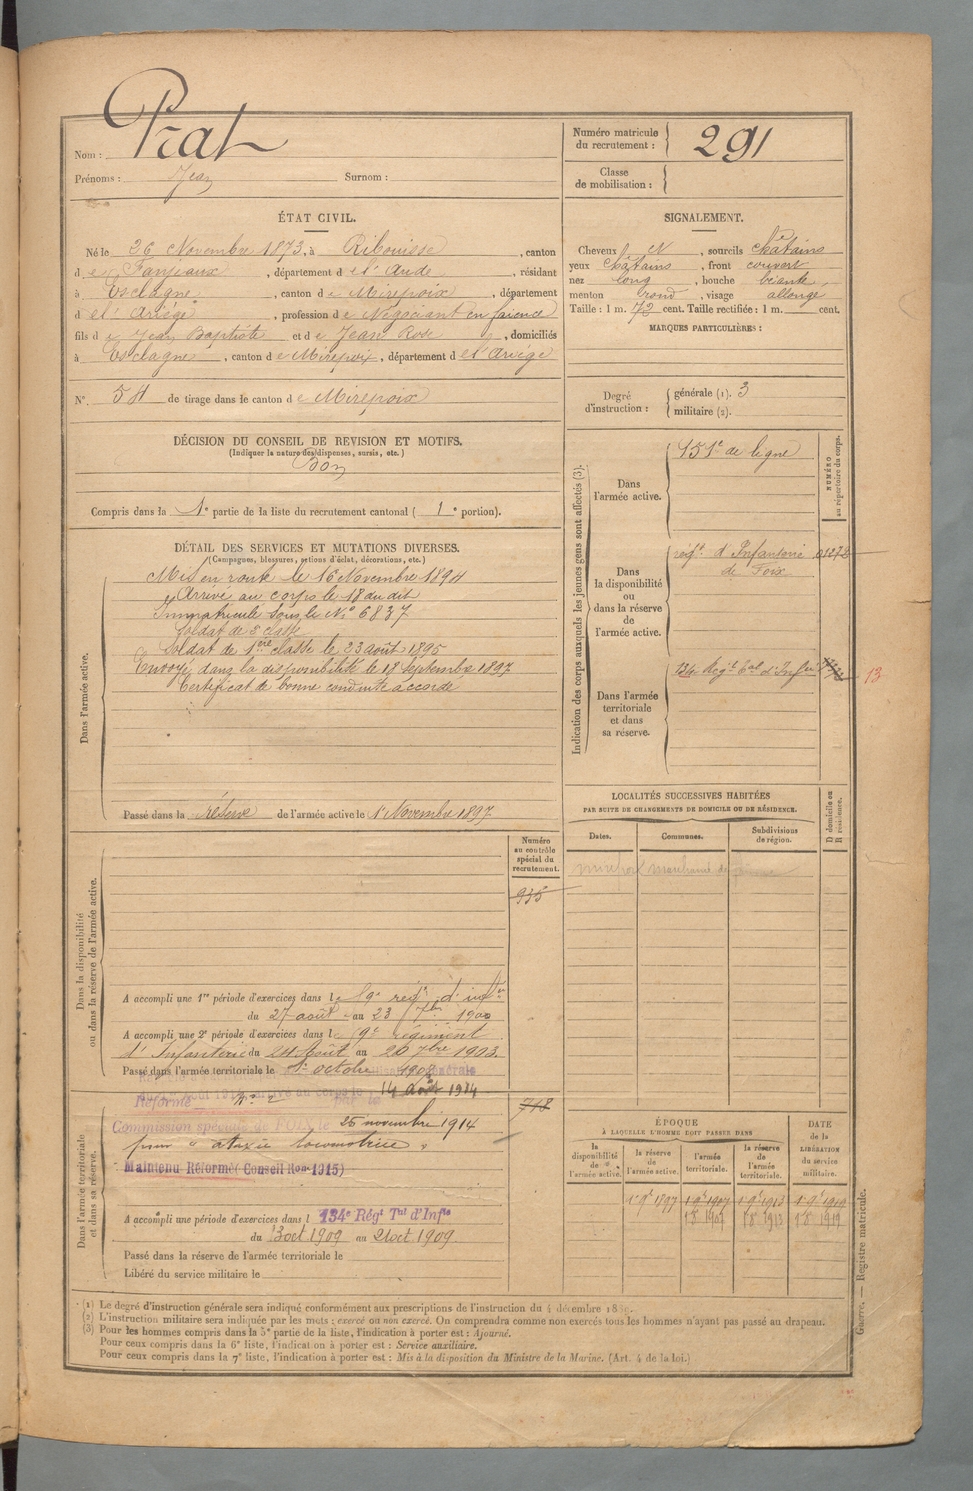 Nom : Prat
Prénoms : Jean Surnom :
Numéro matricule du recrutement : 291
Classe de mobilisation :
ÉTAT CIVIL.
Né le 26 Novembre 1873, à Ribouisse, canton
de Fanjeaux, département de l'Aude, résidant
à Esclagne, canton de Mirepoix, département
de l'Ariège, profession de Négociant en faïence
fils de Jean Baptiste et de Jean Rose, domiciliés
à Esclagne, canton de Mirepoix, département de l'Ariège
N°. 54 de tirage dans le canton de Mirepoix
SIGNALEMENT.
Cheveux N, sourcils châtains
yeux châtains, front couvert
nez long, bouche béante
menton rond, visage allongé
Taille : 1 m. 72 cent. Taille rectifiée : 1 m. cent.
MARQUES PARTICULIÈRES :
Degré d'instruction :
générale (1). 3
militaire (2).
DÉCISION DU CONSEIL DE REVISION ET MOTIFS.
(Indiquer la nature des dispenses, sursis, etc.)
Bon
Compris dans la 1e partie de la liste du recrutement cantonal ( 1 e portion).
DÉTAIL DES SERVICES ET MUTATIONS DIVERSES.
(Campagnes, blessures, actions d'éclat, décorations, etc.)
Dans l'armée active.
Mis en route le 16 Novembre 1894
Arrivé au corps le 18 du dit
Immatriculé sous le N° 6837
Soldat de 2 classe
Soldat de 1ère classe le 23 août 1895
Envoyé dans la disponibilité le 18 septembre 1897
Certificat de bonne conduite accordé
Passé dans la réserve de l'armée active le 1r Novembre 1897.
Indication des corps auxquels les jeunes gens sont affectés (3).
NUMÉRO au répertoire du corps.
Dans l'armée active.
151e de ligne
Dans la disponibilité ou dans la réserve de l'armée active.
régt. d'Infanterie
de Foix
Dans l'armée territoriale et dans sa réserve.
134 Régt Tal d'Infie
13
LOCALITÉS SUCCESSIVES HABITÉES
PAR SUITE DE CHANGEMENTS DE DOMICILE OU DE RÉSIDENCE.
D domicile ou R résidence.
Dates. Communes. Subdivisions de région.
Mirepoix marchand de
Numéro au contrôle spécial du recrutement.
935
Dans la disponibilité ou dans la réserve de l'armée active.
A accompli une 1re période d'exercices dans le 19e régt d'infie
du 27 août au 23 7bre 1900
A accompli une 2e période d'exercices dans le 19e régiment
d'Infanterie du 24 Août au 20 7bre 1903.
Passé dans l'armée territoriale le 1r octobre 1908
14 août 1914
Dans l'armée territoriale et dans sa réserve.
718
Réformé N° 2
Commission spéciale de FOIX le 25 novembre 1914
pour "ataxie locomotrice"
Maintenu Réformé (Conseil Ron 1915)
A accompli une période d'exercices dans l 134e Régt Tal d'Infie
du 13 oct 1909 au 21 oct 1909
Passé dans la réserve de l'armée territoriale le
Libéré du service militaire le
ÉPOQUE
À LAQUELLE L'HOMME DOIT PASSER DANS
la disponibilité de l'armée active.
la réserve de l'armée active.
l'armée territoriale.
la réserve de l'armée territoriale.
DATE de la LIBÉRATION du service militaire.
1r 9e 1897 1r 9e 1907 1r 9e 1913 1r 9e 1919
1 8 1907 1 8 1913 1 8 1919
(1) Le degré d'instruction générale sera indiqué conformément aux prescriptions de l'instruction du 4 décembre 1889.
(2) L'instruction militaire sera indiquée par les mots : exercé ou non exercé. On comprendra comme non exercés tous les hommes n'ayant pas passé au drapeau.
(3) Pour les hommes compris dans la 5e partie de la liste, l'indication à porter est : Ajourné.
Pour ceux compris dans la 6e liste, l'indication à porter est : Service auxiliaire.
Pour ceux compris dans la 7e liste, l'indication à porter est : Mis à la disposition du Ministre de la Marine. (Art. 4 de la loi.)
Guerre. — Registre matricule.